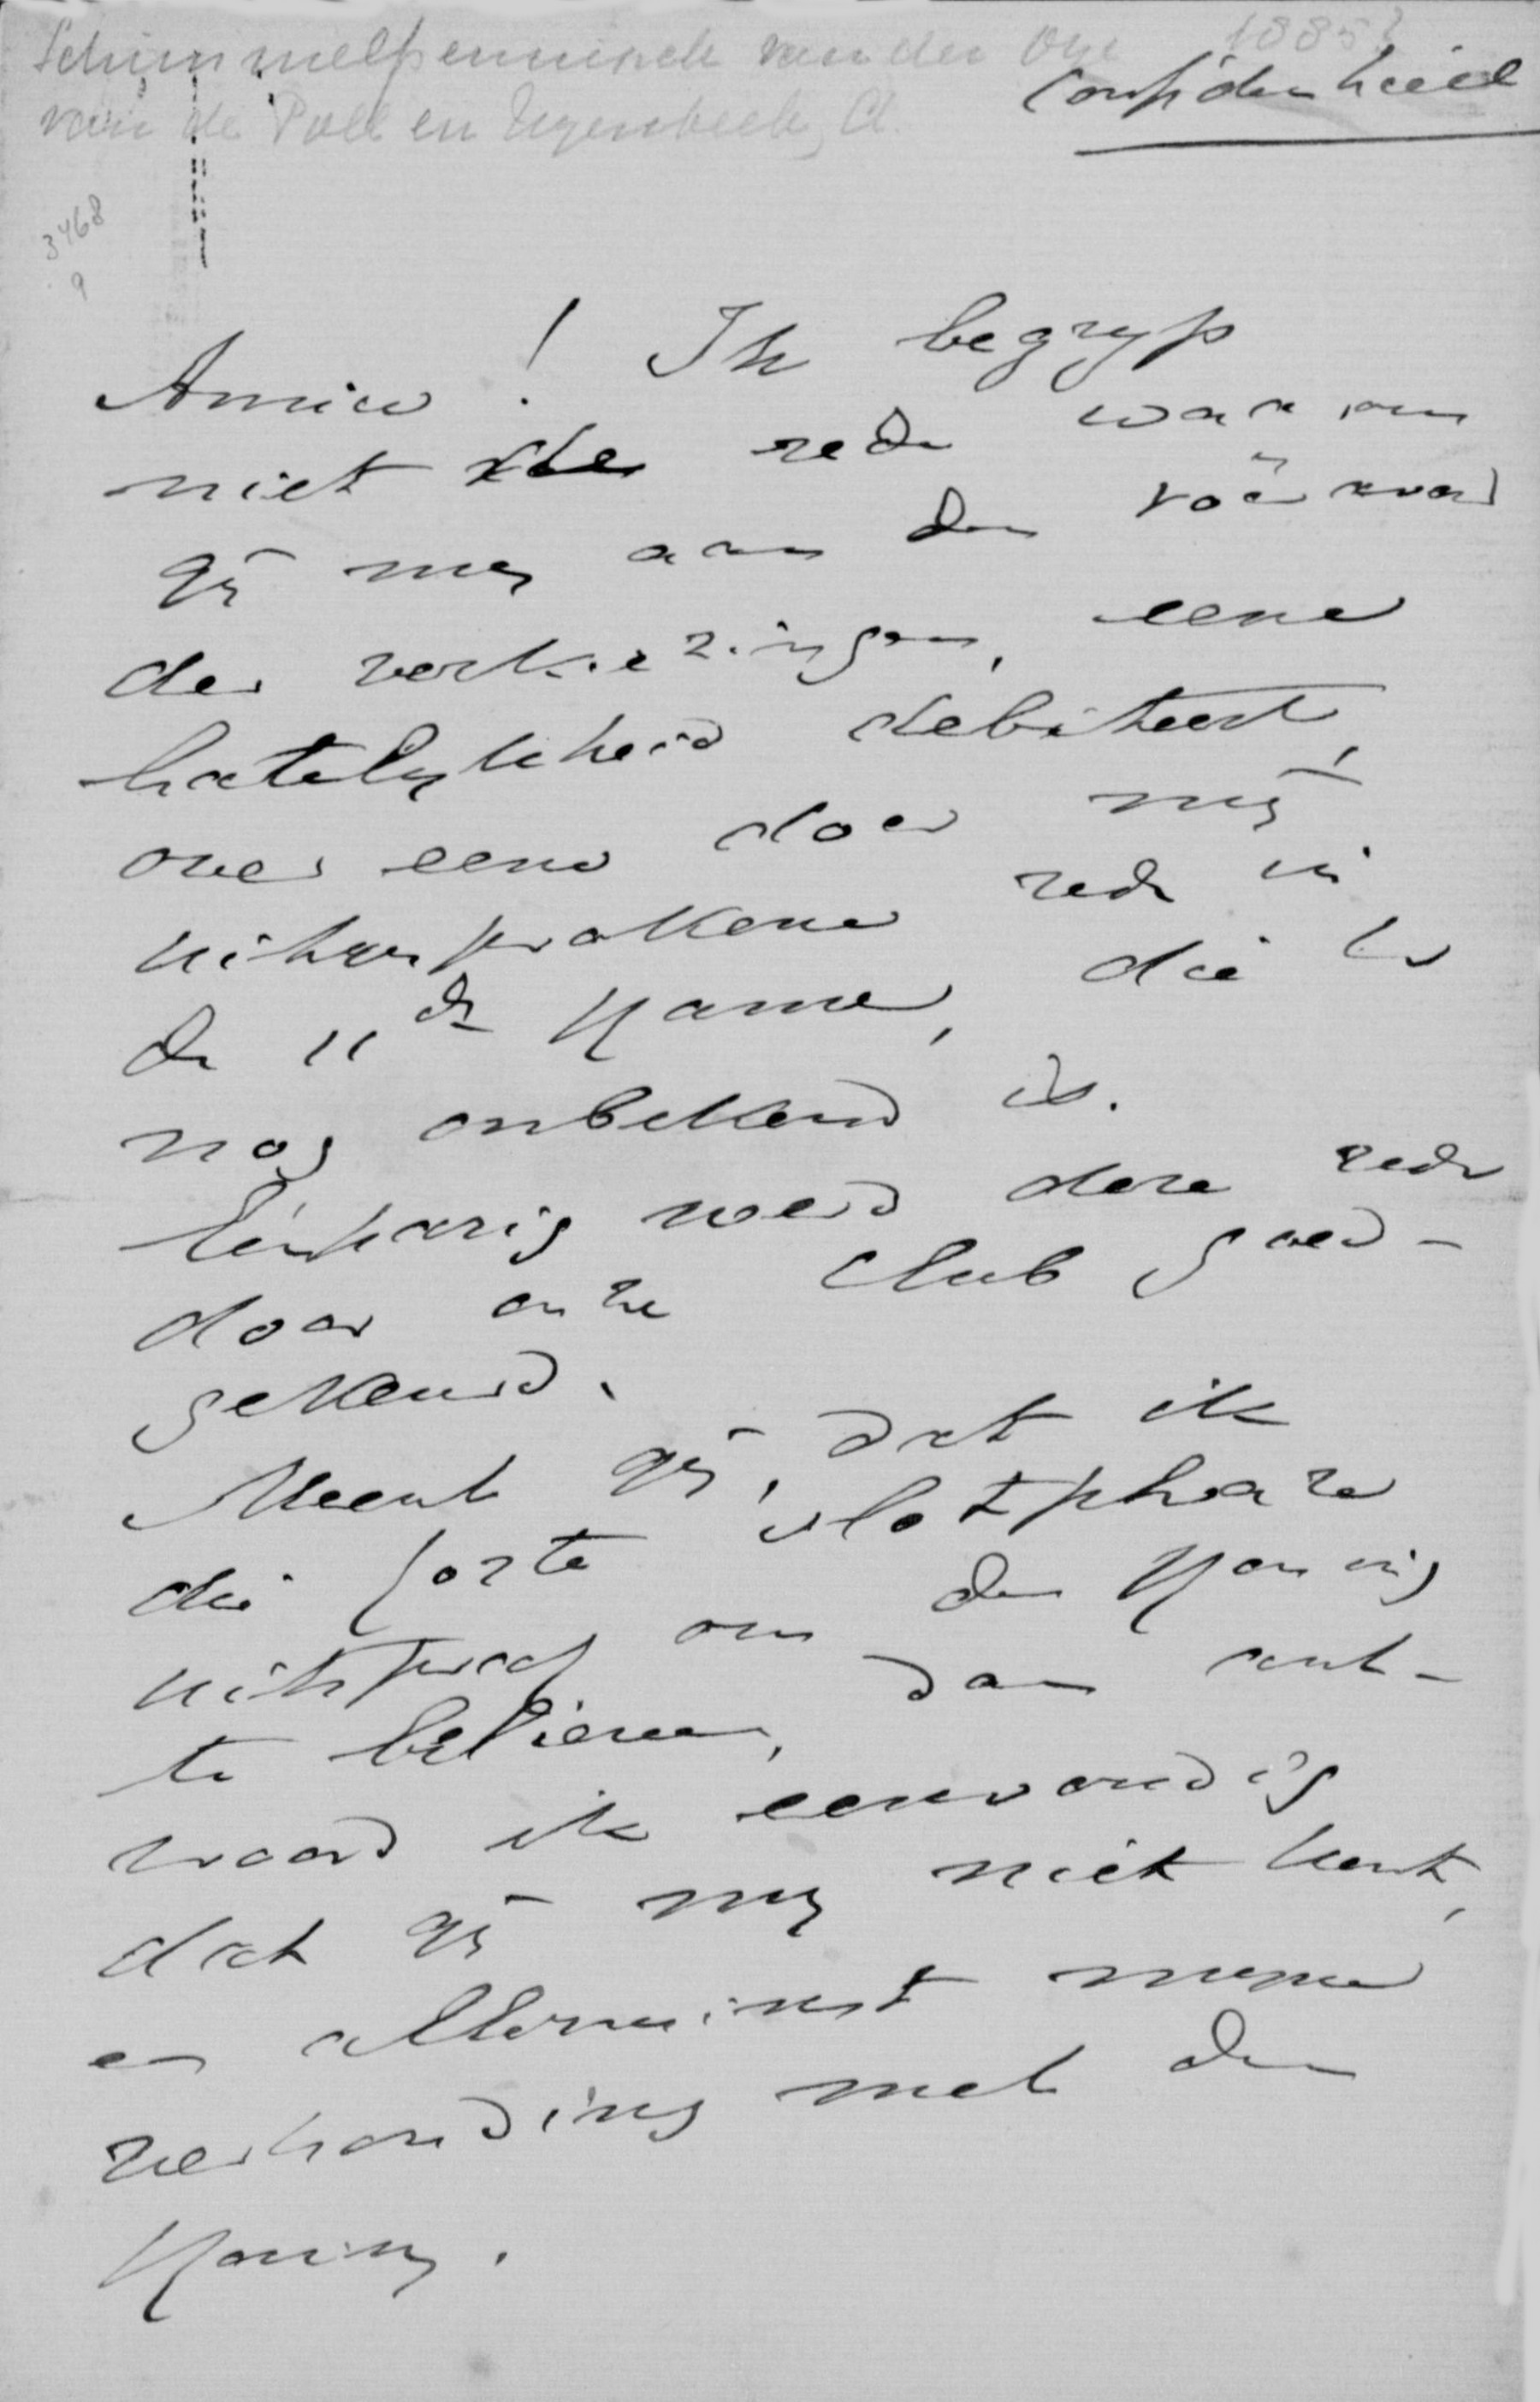 Schimmelpenninck van der Oye 1885?
van de Poll en Nyenbeek, A.
Confidentieel
3468
9
Amice! Ik begryp
niet de rede waarom
gÿ my aan den vooravond
der verkiezingen, eene
hatelykheid debiteert,
over eene door mÿ
uitgesprokene rede in
de 11de Kamer, die U
nog onbekend is.
Eenparig werd deze rede
door onze club goed-
gekeurd.
Meent gÿ, dat ik
die forte slotphraze
uitsprak om den Koning
te believen, dan ant-
woord ik eenvoudig
dat gÿ my niet kent,
en allerminst myne
verhouding met den
Koning.